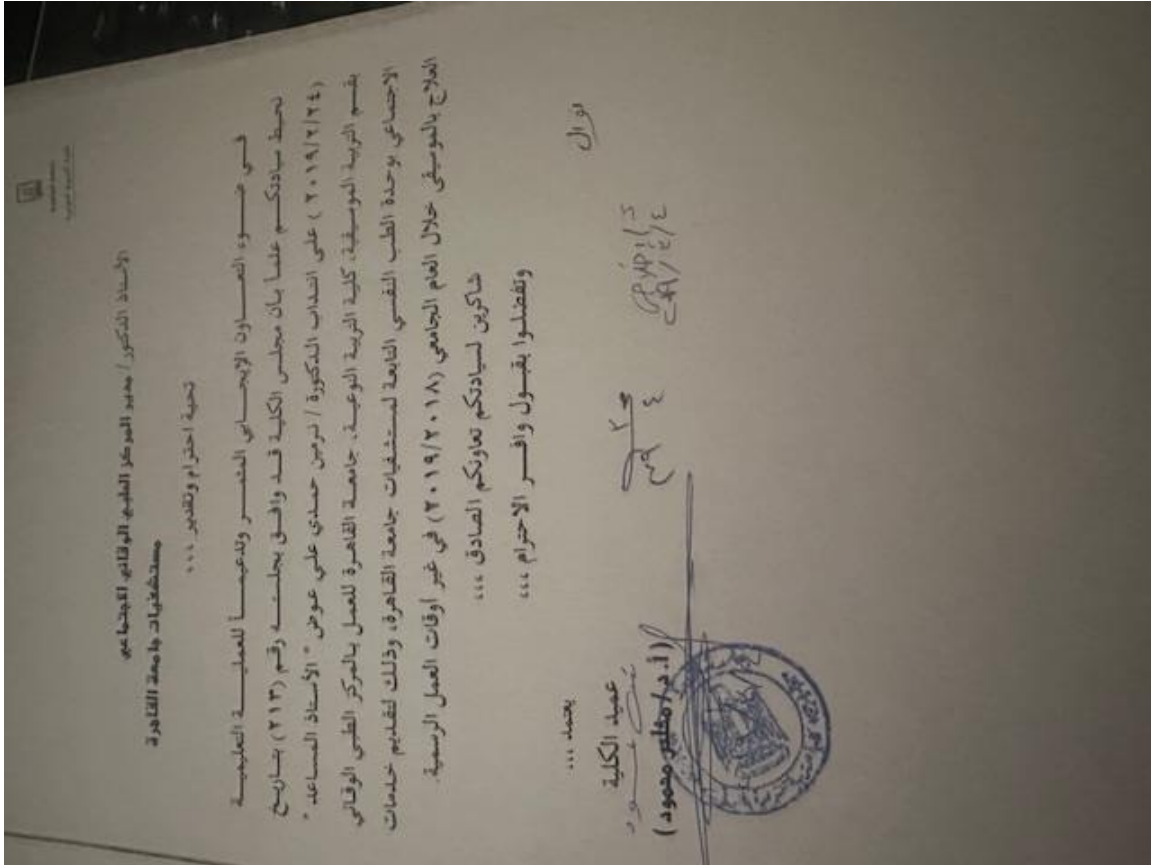 الأستاذ الدكتور / مدير المركز الطبي الوقائي الاجتماعي
مستشفيات جامعة القاهرة
تحية احترام وتقدير ،،،
فـي ضـــوء التعـــاون الإيجـــابي المثمـــر وتدعيمـــاً للعمليـــة التعليميـــة
نحيـط سيادتكـم علمـاً بـأن مجلـس الكليـة قـد وافـق بجلسـته رقـم (٢١٣) بتـاريخ
(٢٠١٩/٢/٢٤) على انتداب الدكتورة / نرمين حمدي علي عوض " الأستاذ المساعد "
بقسم التربية الموسيقية، كلية التربية النوعية، جامعة القاهرة للعمل بالمركز الطبي الوقائي
الاجتماعي بوحدة الطب النفسي التابعة لمستشفيات جامعة القاهرة، وذلك لتقديم خدمات
العلاج بالموسيقى خلال العام الجامعي (٢٠١٩/٢٠١٨) في غير أوقات العمل الرسمية.
شاكرين لسيادتكم تعاونكم الصادق ،،،
وتفضلـوا بقبـول وافـــر الاحترام ،،،
نوال
يعتمد ،،،
عميد الكلية
(أ.د/ محمود)